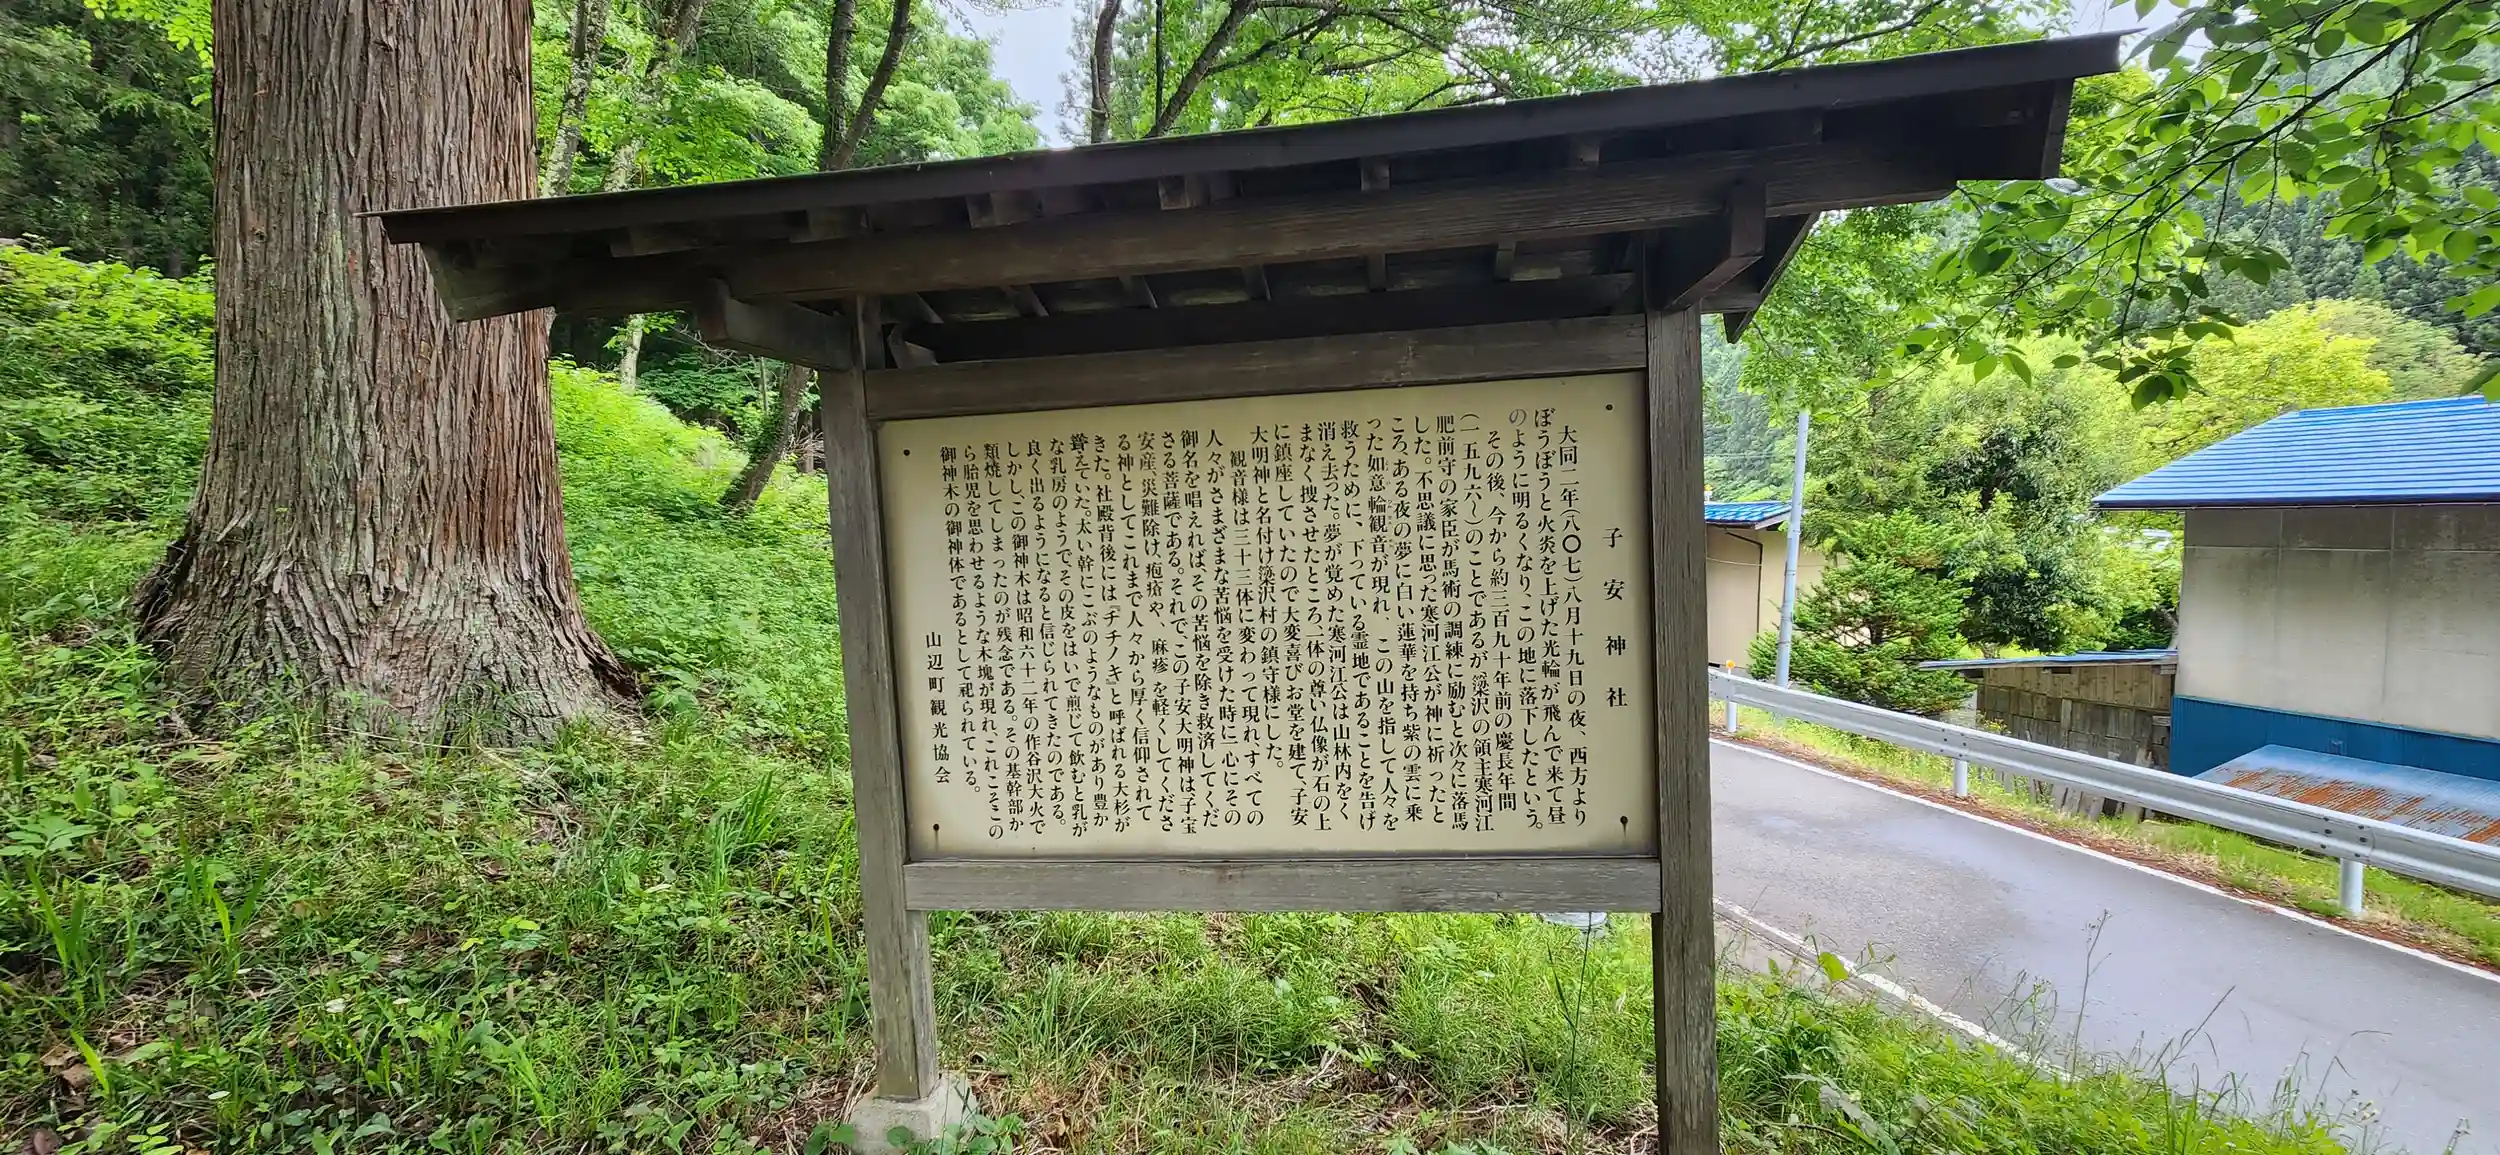 子安神社
大同二年(八〇七)八月十九日の夜、西方より
ぼうぼうと火炎を上げた光輪が飛んで来て昼
のように明るくなり、この地に落下したという。
その後、今から約三百九十年前の慶長年間
(一五九六〜)のことであるが、簗沢の領主寒河江
肥前守の家臣が馬術の調練に励むと次々に落馬
した。不思議に思った寒河江公が神に祈ったと
ころ、ある夜の夢に白い蓮華を持ち紫の雲に乗
った如意輪観音が現れ、この山を指して人々を
救うために、下っている霊地であることを告げ
消え去った。夢が覚めた寒河江公は山林内をく
まなく捜させたところ、一体の尊い仏像が石の上
に鎮座していたので大変喜びお堂を建て、子安
大明神と名付け簗沢村の鎮守様にした。
観音様は三十三体に変わって現れ、すべての
人々がさまざまな苦悩を受けた時に一心にその
御名を唱えれば、その苦悩を除き救済してくだ
さる菩薩である。それで、この子安大明神は、子宝
安産、災難除け、疱瘡や、麻疹を軽くしてくださ
る神としてこれまで人々から厚く信仰されて
きた。社殿背後には『チチノキ』と呼ばれる大杉が
聳えていた。太い幹にこぶのようなものがあり豊か
な乳房のようで、その皮をはいで煎じて飲むと乳が
良く出るようになると信じられてきたのである。
しかし、この御神木は昭和六十二年の作谷沢大火で
類焼してしまったのが残念である。その基幹部か
ら胎児を思わせるような木塊が現れ、これこそこの
御神木の御神体であるとして祀られている。
山辺町観光協会